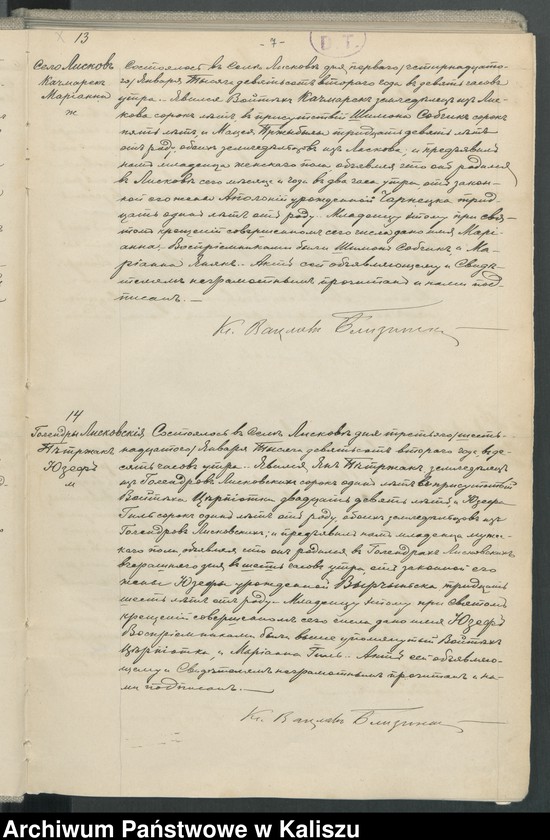 13
- 7 -
Село Лисковъ
Качмарекъ
Марiанна
ж
Состоялось въ Селѣ Лисковѣ дня перваго/четырнадцато-
го/ Января Тысяча девятьсотъ второго года въ девять часовъ
утра. Явился Войтѣхъ Качмарекъ земледѣлецъ изъ Лис-
кова сорокъ лѣтъ, въ присутствiи Шимона Собчакъ сорокъ
пять лѣтъ, и Мацея Пржибыла тридцать девять лѣтъ
отъ роду, обоихъ земледѣльцовъ изъ Лискова, и предъявилъ
намъ младенца женскаго пола, объявляя что онъ родился
въ Лисковѣ сего мѣсяца и года въ два часа утра отъ закон-
ной его жены Аполонiи урожденной Чарнецка трид-
цать одинъ лѣтъ отъ роду. Младенцу этому при свя-
томъ крещенiи совершенномъ сего числа дано имя Марi-
анна. Воспрiемниками были Шимонъ Собчакъ и Ма-
рiанна Янякъ. Актъ сей объявляющему и Свидѣ-
телямъ неграмотнымъ прочитанъ и нами под-
писанъ. —
Кс. Вацлавъ Близинскiй
14
Гогендры Лисковскiя
Пѣтржакъ
Юзефъ
м
Состоялось въ Селѣ Лисковѣ дня третьяго/шест-
надцатого/ Января Тысяча девятьсотъ второго года въ де-
сять часовъ утра. Явился Янъ Пѣтржакъ земледѣлецъ
изъ Гогендровъ Лисковскихъ сорокъ одинъ лѣтъ, въ присутствiи
Войтѣха Цѣрпiотка двадцать девять лѣтъ, и Юзефа
Гиль сорокъ одинъ лѣтъ отъ роду, обоихъ земледѣльцовъ изъ
Гогендровъ Лисковскихъ, и предъявилъ намъ младенца мужес-
кого пола, объявляя что онъ родился въ Гогендрахъ Лисковскихъ
вчерашняго дня въ шесть часовъ утра отъ законной его
жены Юзефы урожденной тридцать
шесть лѣтъ отъ роду. Младенцу этому при Святомъ
крещенiи совершенномъ сего числа дано имя Юзефъ
Воспрiемниками были выше упомянутый Войтѣхъ
Цѣрпiотка и Марiанна Гиль. Актъ сей объявляю-
щему и Свидѣтелямъ неграмотнымъ прочитанъ и на-
ми подписанъ. —
Кс. Вацлавъ Близинскiй
Archiwum Państwowe w Kaliszu